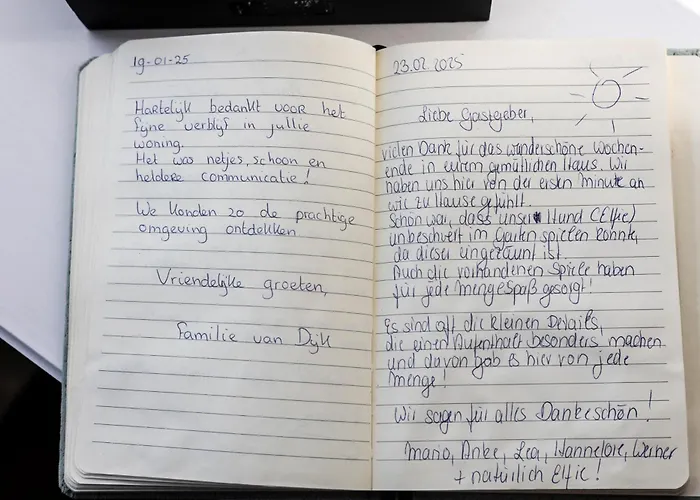 19-01-25
Hartelijk bedankt voor het
fyne verblijf in jullie
woning.
Het was netjes, schoon en
heldere communicatie!
We konden zo de prachtige
omgeving ontdekken
Vriendelijke groeten,
Familie van Dijk
23.02.2025
Liebe Gastgeber,
vielen Dank für das wunderschöne Wochen-
ende in eurem gemütlichen Haus. Wir
haben uns hier von der ersten Minute an
wie zu Hause gefühlt.
Schön war, dass unser Hund (Elfie)
unbeschwert im Garten spielen konnte,
da dieser eingezäunt ist.
Auch die vorhandenen Spiele haben
für jede Menge Spaß gesorgt!
Es sind oft die kleinen Details,
die einen Aufenthalt besonders machen
und davon gab es hier von jede
Menge!
Wir sagen für alles Dankeschön!
Mario, Anke, Lea, Hannelore, Werner
+ natürlich Elfie!